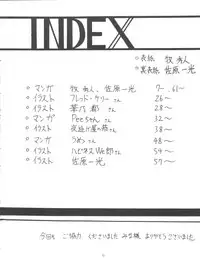 INDEX
○表紙 牧 秀人
○裏表紙 佐原一光
○マンガ 牧 秀人、佐原一光 7~、61~
○イラスト フレッド・ケリー さん 26~
○イラスト 葉乃 都 さん 28~
○マンガ Peeちゃん 32~
○イラスト さん 38~
○マンガ うめつ さん 48~
○イラスト ハピネスWE郎 さん 54~
○イラスト 佐原 一光 57~
今回も ご協力 くださいました みな様、ありがとうございました